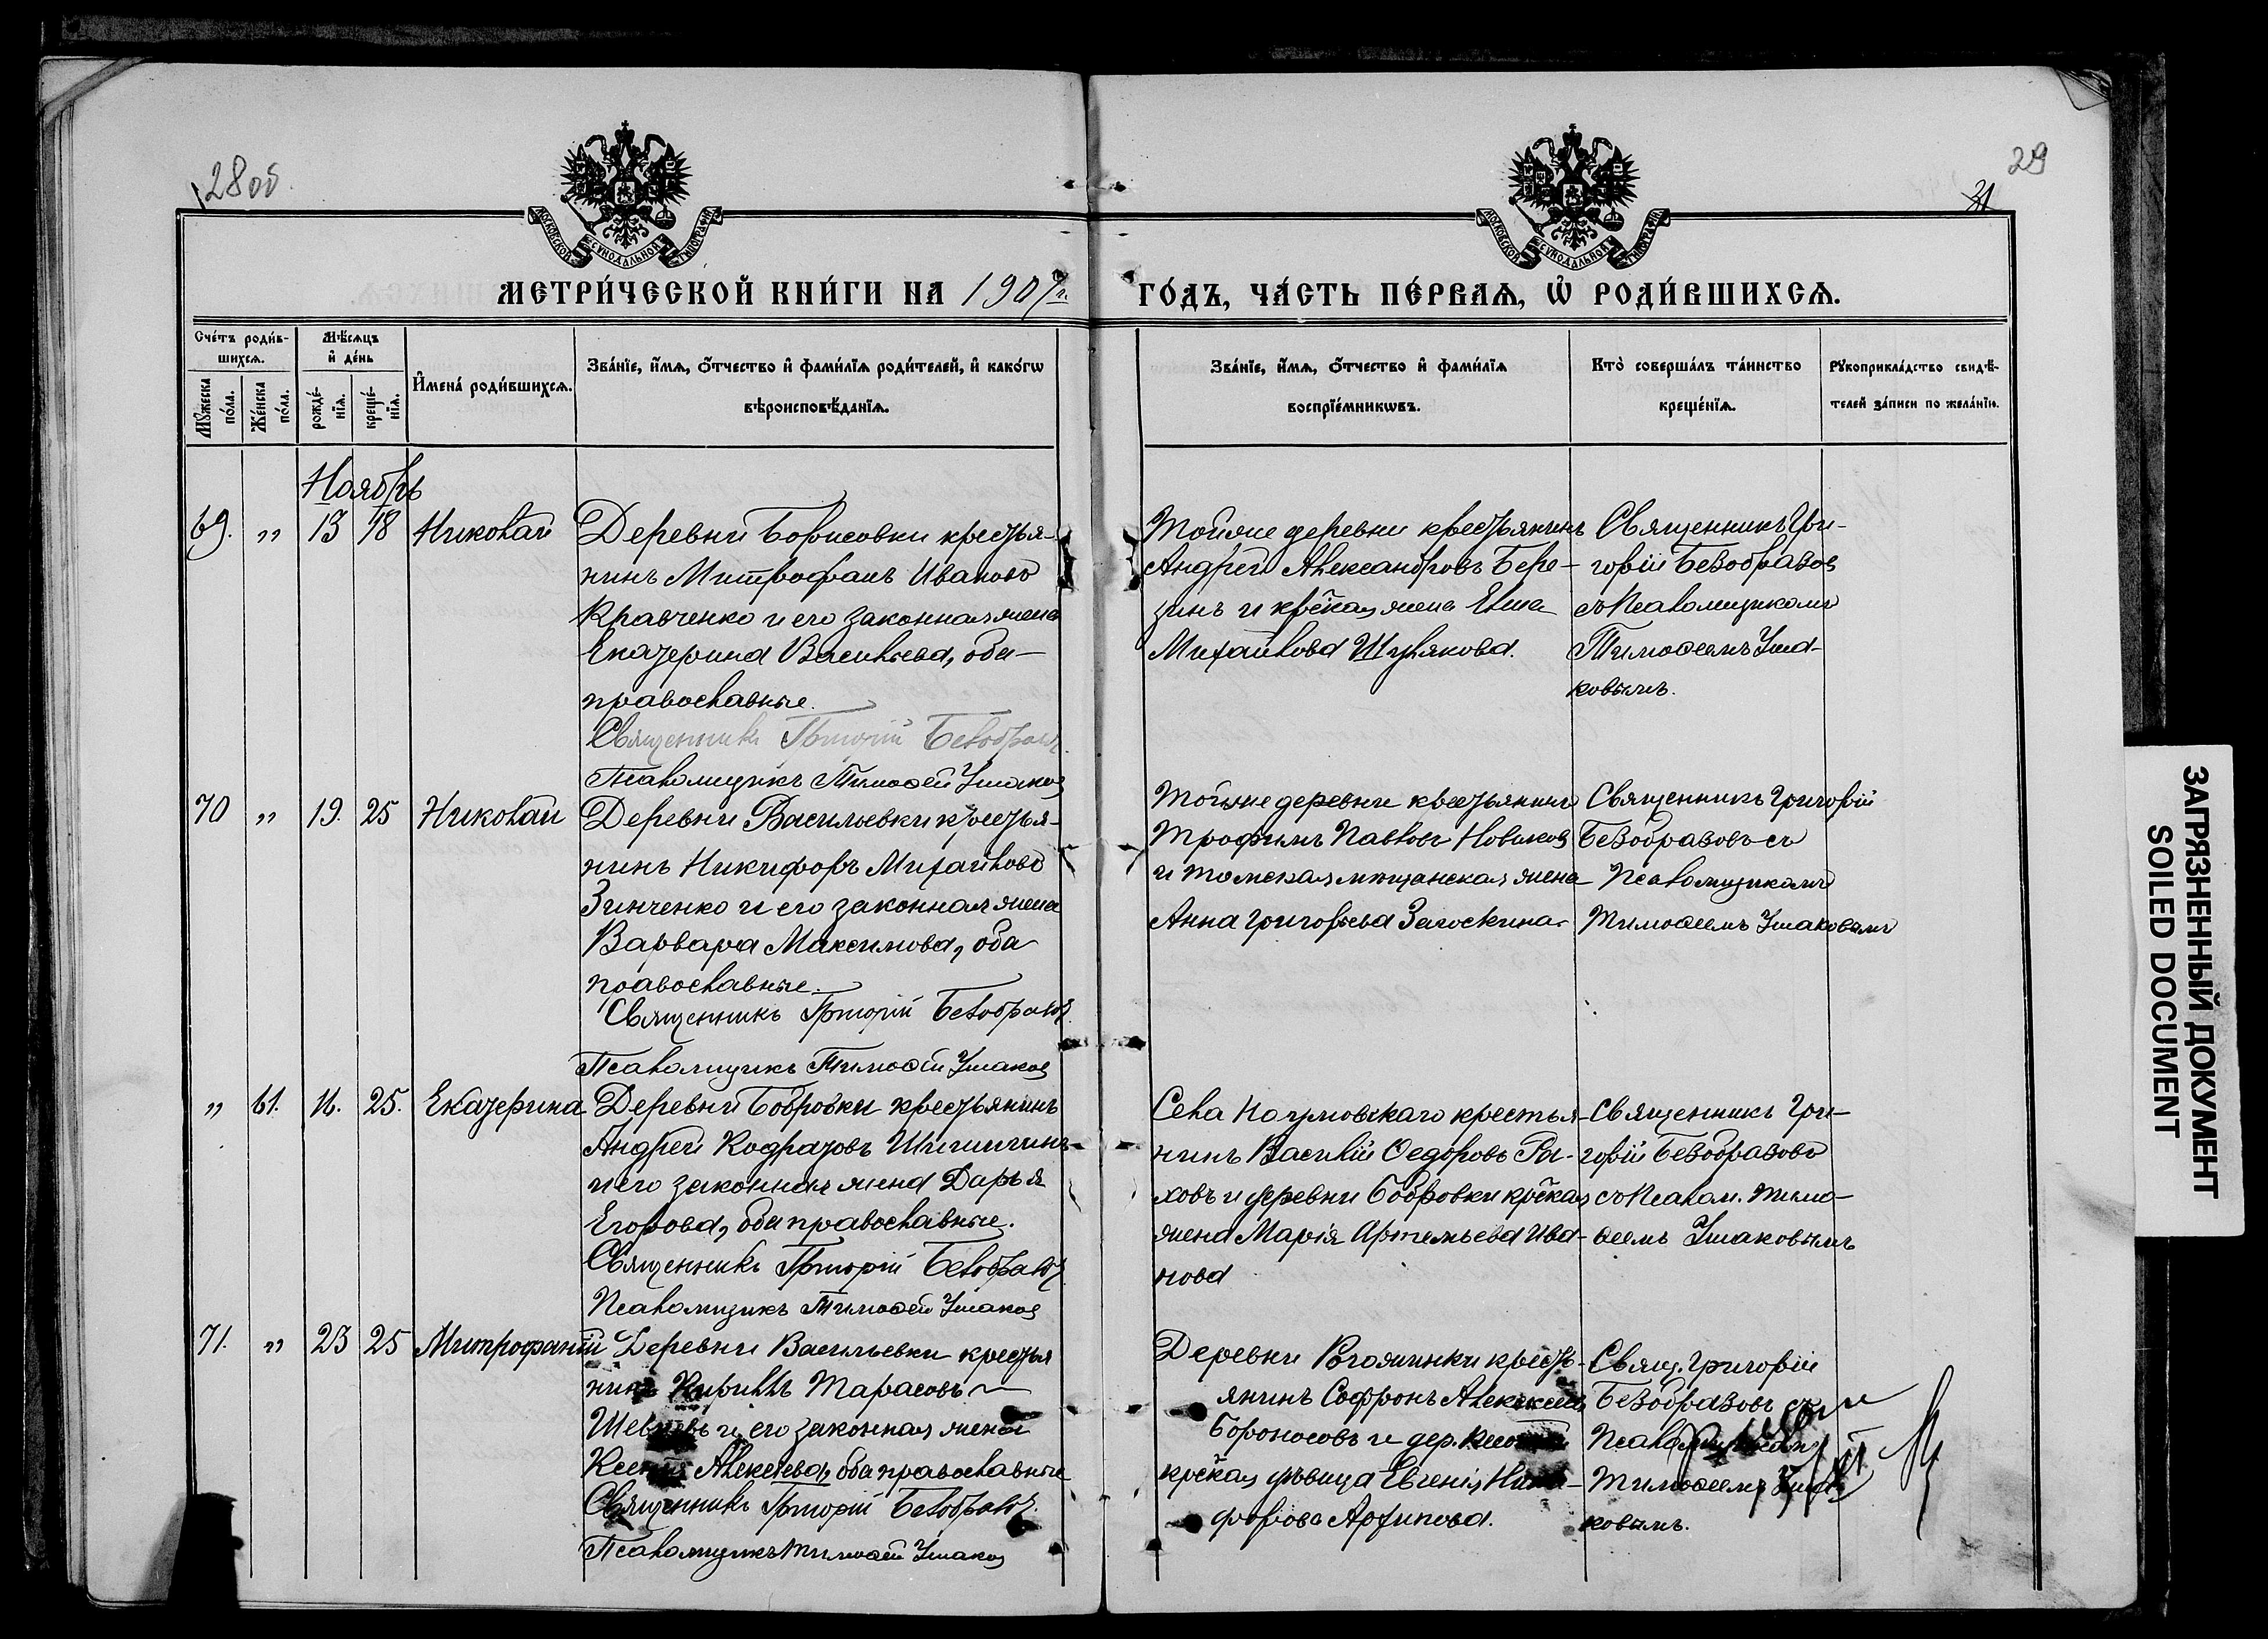 28 об.
29
31
МОСКОВСКОЙ СѴНОДАЛЬНОЙ ТИПОГРАФІИ
МОСКОВСКОЙ СѴНОДАЛЬНОЙ ТИПОГРАФІИ
МЕТРИ́ЧЕСКОЙ КНИ́ГИ НА 1907 г.
ГО́ДЪ, ЧА́СТЬ ПЕ́РВАѦ, Ѡ РОДИ́ВШИХСѦ.
Сче́тъ роди́в-
шихсѧ.
Мꙋжеска по́ла.
Же́нска по́ла.
Мѣ́сѧцъ
и҆ де́нь
рожде́-
нїѧ.
креще́-
нїѧ.
И҆мена́ роди́вшихсѧ.
Зва́нїе, и҆́мѧ, ѻ҆́тчество и҆ фами́лїѧ роди́телей, и҆ како́гѡ
вѣроисповѣ́данїѧ.
Зва́нїе, и҆́мѧ, ѻ҆́тчество и҆ фами́лїѧ
воспрїе́мникѡвъ.
Кто̀ соверша́лъ та́инство
креще́нїѧ.
Рꙋкоприкла́дство свидѣ́-
телей за́писи по жела́нїю.
Ноябрь
69. „ 13 18 Николай
Деревни Борисовки крестья-
нинъ Митрофанъ Ивановъ
Кравченко и его законная жена
Екатерина Васильева, оба
православные.
Священникъ Григорій Безобразовъ
Псаломщикъ Тимоѳей Ушаковъ
Тойже деревни крестьянинъ
Андрей Александровъ Бере-
зинъ и кр̃ская жена
Михайлова Шулякова.
Священникъ Гри-
горій Безобразовъ
съ Псаломщикомъ
Тимоѳеемъ Уша-
ковымъ.
70 „ 19. 25 Николай
Деревни Васильевки крестья-
нинъ Никифоръ Михайловъ
Зинченко и его законная жена
Варвара Максимова, оба
православные.
Священникъ Григорій Безобразовъ
Псаломщикъ Тимоѳей Ушаковъ
Тойже деревни крестьянинъ
Трофимъ Павловъ Новиковъ
и томская мѣщанская жена
Анна Григорьева Загоскина.
Священникъ Григорій
Безобразовъ съ
Псаломщикомъ
Тимоѳеемъ Ушаковымъ
„ 61. 16. 25. Екатерина
Деревни Бобровки крестьянинъ
Андрей Кодратовъ Шишигинъ
и его законная жена Дарья
Егорова, оба православные.
Священникъ Григорій Безобразовъ
Псаломщикъ Тимоѳей Ушаковъ
Села Наумовскаго крестья-
нинъ Василій Ѳедоровъ Ры-
ховъ и деревни Бобровки кр̃ская
жена Марія Артемьева Ива-
нова
Священникъ Гри-
горій Безобразовъ
съ Псалом. Тимо-
ѳеемъ Ушаковымъ
71. „ 23 25 Митрофаній
Деревни Васильевки крестья
нинъ Кириллъ Тарасовъ
и его законная жена
Ксенія Алексѣева, оба православные
Священникъ Григорій Безобразовъ.
Псаломщикъ Тимоѳей Ушаковъ
Деревни Рогожинки кресть-
янинъ Софронъ Алексѣевъ
Бороносовъ и дер.
кр̃ская дѣвица Евгенія Ники-
форова Архипова.
Свящ. Григорій
Безобразовъ съ
Тимоѳеемъ Уша-
ковымъ.
ЗАГРЯЗНЕННЫЙ ДОКУМЕНТ
SOILED DOCUMENT